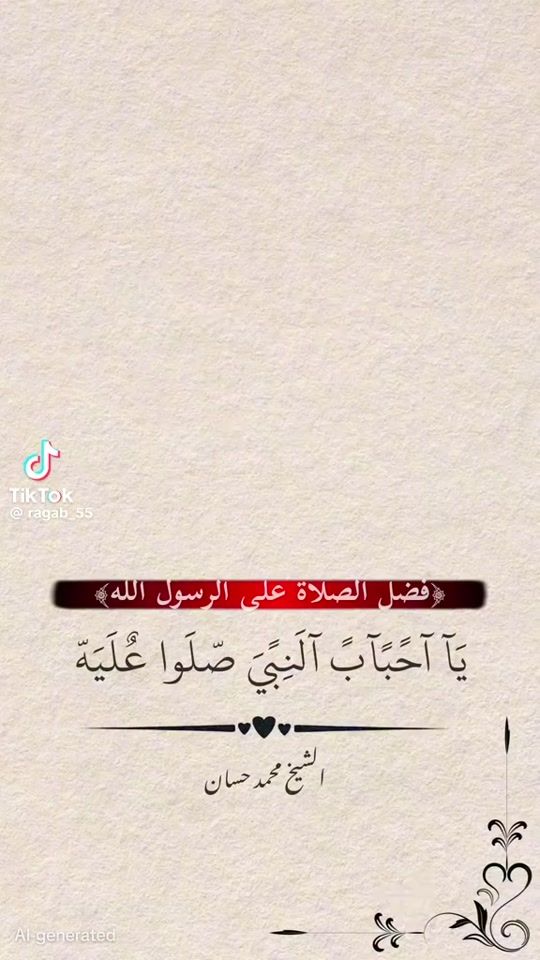 TikTok
@ ragab_55
﴿فضل الصلاة على الرسول الله﴾
يَآ آحًبًآبً آلَنِبًيَ صّلَوا عٌلَيَهّ
الشيخ محمد حسان
AI-generated